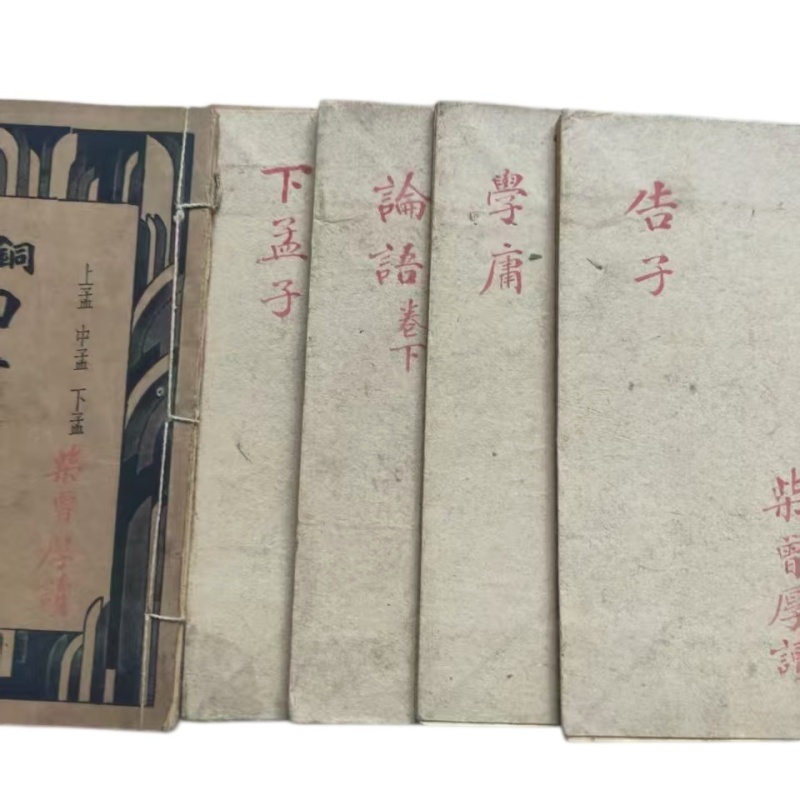 銅
上孟 中孟 下孟
柴曾厚讀
下孟子
論語卷下
學庸
告子
柴曾厚讀